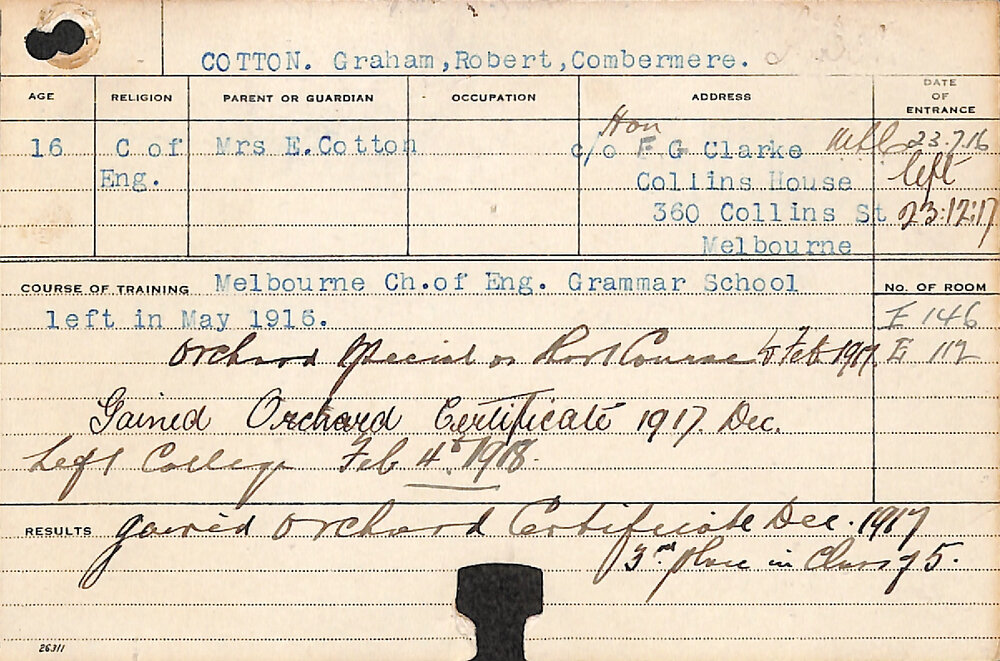 COTTON. Graham,Robert,Combermere.
AGE RELIGION PARENT OR GUARDIAN OCCUPATION ADDRESS DATE OF ENTRANCE
Hon
16 C of Mrs E.Cotton c/o F G Clarke 23.7.16
Eng. Collins House left
360 Collins St 23:12:17
Melbourne
COURSE OF TRAINING Melbourne Ch.of Eng. Grammar School No. OF ROOM
left in May 1916. E 146
Orchard Special or Short Course Feb 1917. E 112
Gained Orchard Certificate 1917. Dec.
Left College Feb 4th 1918.
RESULTS gained Orchard Certificate Dec. 1917
3rd place in Class of 5.
26311